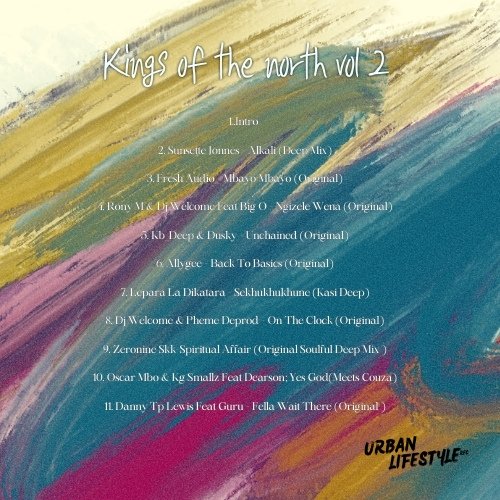 Kings of the north vol 2
1.Intro
2. Sunsette Jonnes - Mkali (Deep Mix)
3. Fresh Audio - Mbayo Mbayo (Original)
4. Rony M & Dj Welcome Feat Big O - Ngizele Wena (Original)
5. Kb Deep & Dusky - Unchained (Original)
6. Allygee - Back To Basics (Original)
7. Lepara La Dikatara - Sekhukhukhune (Kasi Deep)
8. Dj Welcome & Pheme Deprod - On The Clock (Original)
9. Zeronine Skk-Spiritual Affair (Original Soulful Deep Mix )
10. Oscar Mbo & Kg Smallz Feat Dearson; Yes God(Meets Couza)
11. Danny Tp Lewis Feat Guru - Fella Wait There (Original )
URBAN
LIFESTYLE